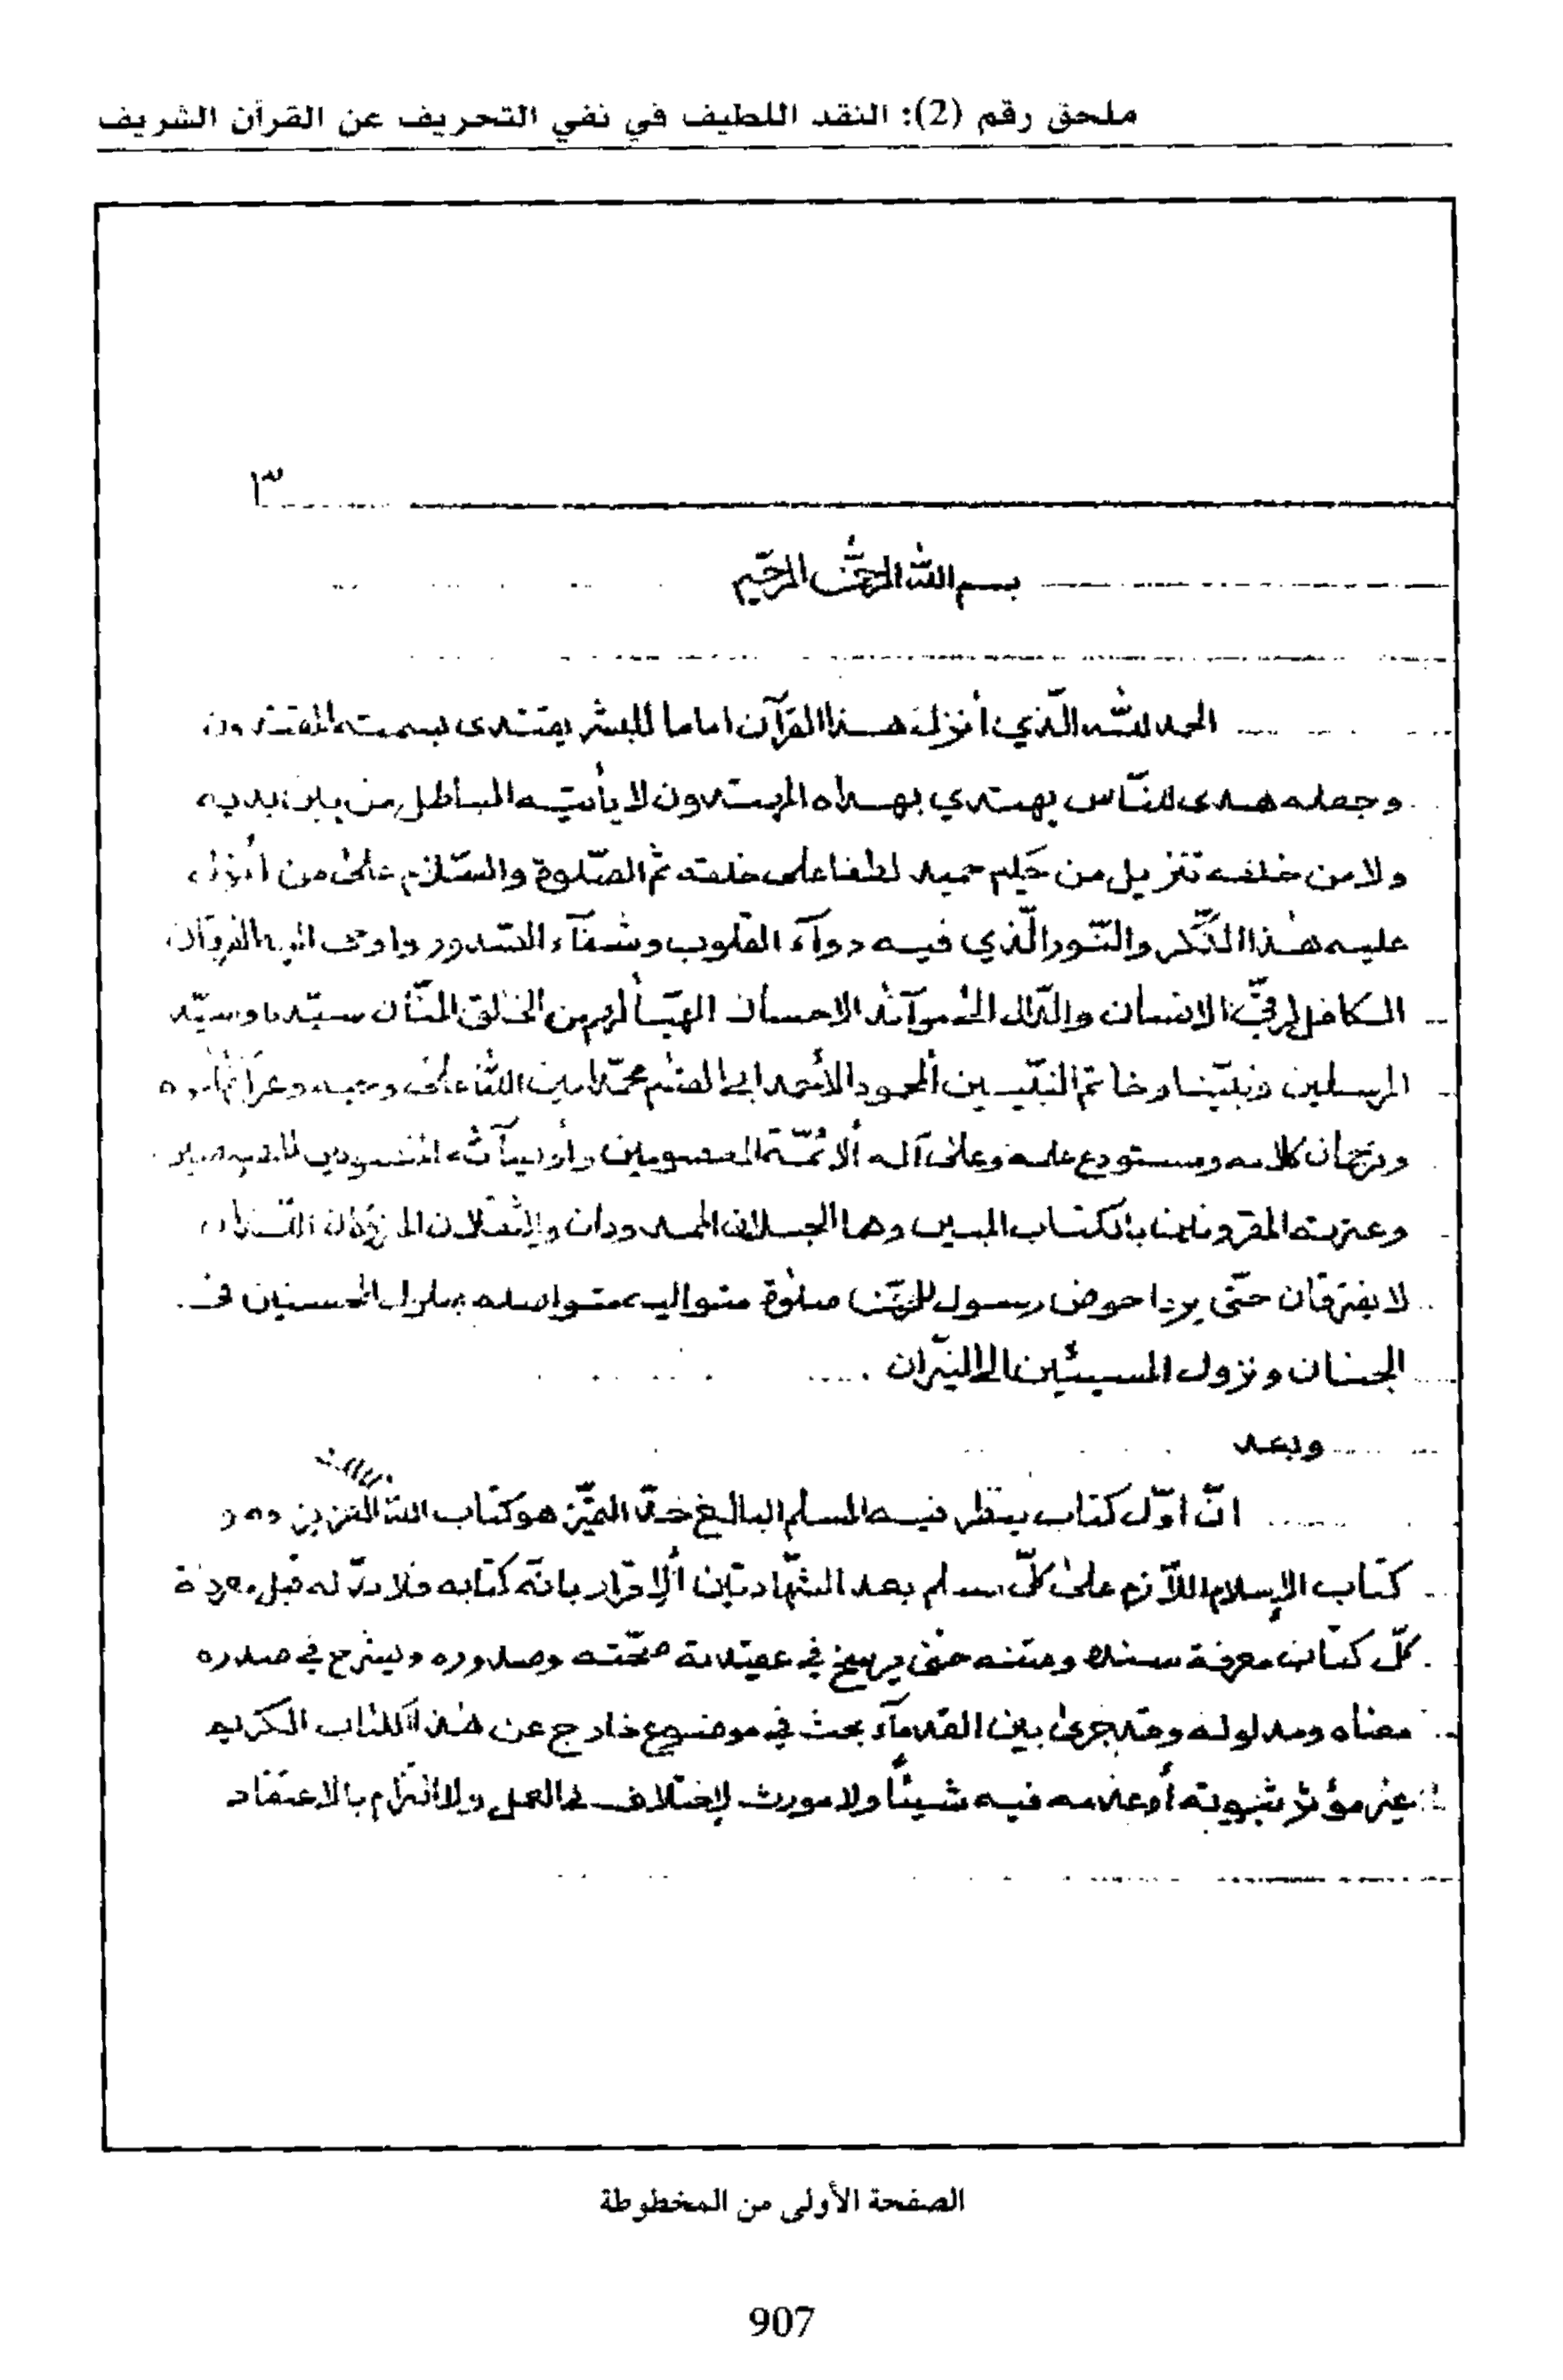 ملحق رقم (2): النقد اللطيف في نفي التحريف عن القرآن الشريف
٣
بسم الله الرحمن الرحيم
الحمد لله الّذي أنزل هذا القرآن اماما للبشر يقتدى بسمته المقتدون
وجعله هدى للنّاس يهتدي بهداه المهتدون لا يأتيه الباطل من بين يديه
ولا من خلفه تنزيل من حكيم حميد لطفا على خلقه ثمّ الصّلوة والسّلام على من أنزل
عليه هذا الذّكر والنّور الّذي فيه دوآء القلوب وشفآء الصّدور واوحى اليه الفرقان
الكافل لرقيّ الانسان والدّال الى موآئد الاحسان المهيّأ لهم من الخالق المنّان سيّدنا وسيّد
المرسلين ونبيّنا وخاتم النبيّين المحمود الأحمد ابي القاسم محمّد امين الله على وحيه
وترجمان كلامه ومستودع علمه وعلى آله ألائمّة المعصومين
وعترته المقرونين بالكتاب المبين وهما الحبلان الممدودان والثقلان
لا يفترقان حتّى يردا حوض رسول صلوة متوالية متواصلة بحلول المحسنين في
الجنان ونزول المسيئين الى النيّران
وبعد
انّ اوّل كتاب ينظر فيه المسلم البالغ حدّ التميّز هو كتاب الله العزيز وهو
كتاب الإسلام اللاّزم على كلّ مسلم بعد الشّهادتين ألإقرار بانّه كتابه فلا بدّ له قبل معرفة
كلّ كتاب معرفة سنده ومتنه حتّى يرسخ في عقيدته صحّته وصدوره وينشرح في صدره
معناه ومدلوله وقد جرى بين القدمآء بحث في موضوع خارج عن هذا الكتاب الكريم
غير مؤثر ثبوته أو عدمه فيه شيئاً ولا مورث لإختلاف في العمل ولا التزام بالاعتقاد
الصفحة الأولى من المخطوطة
907